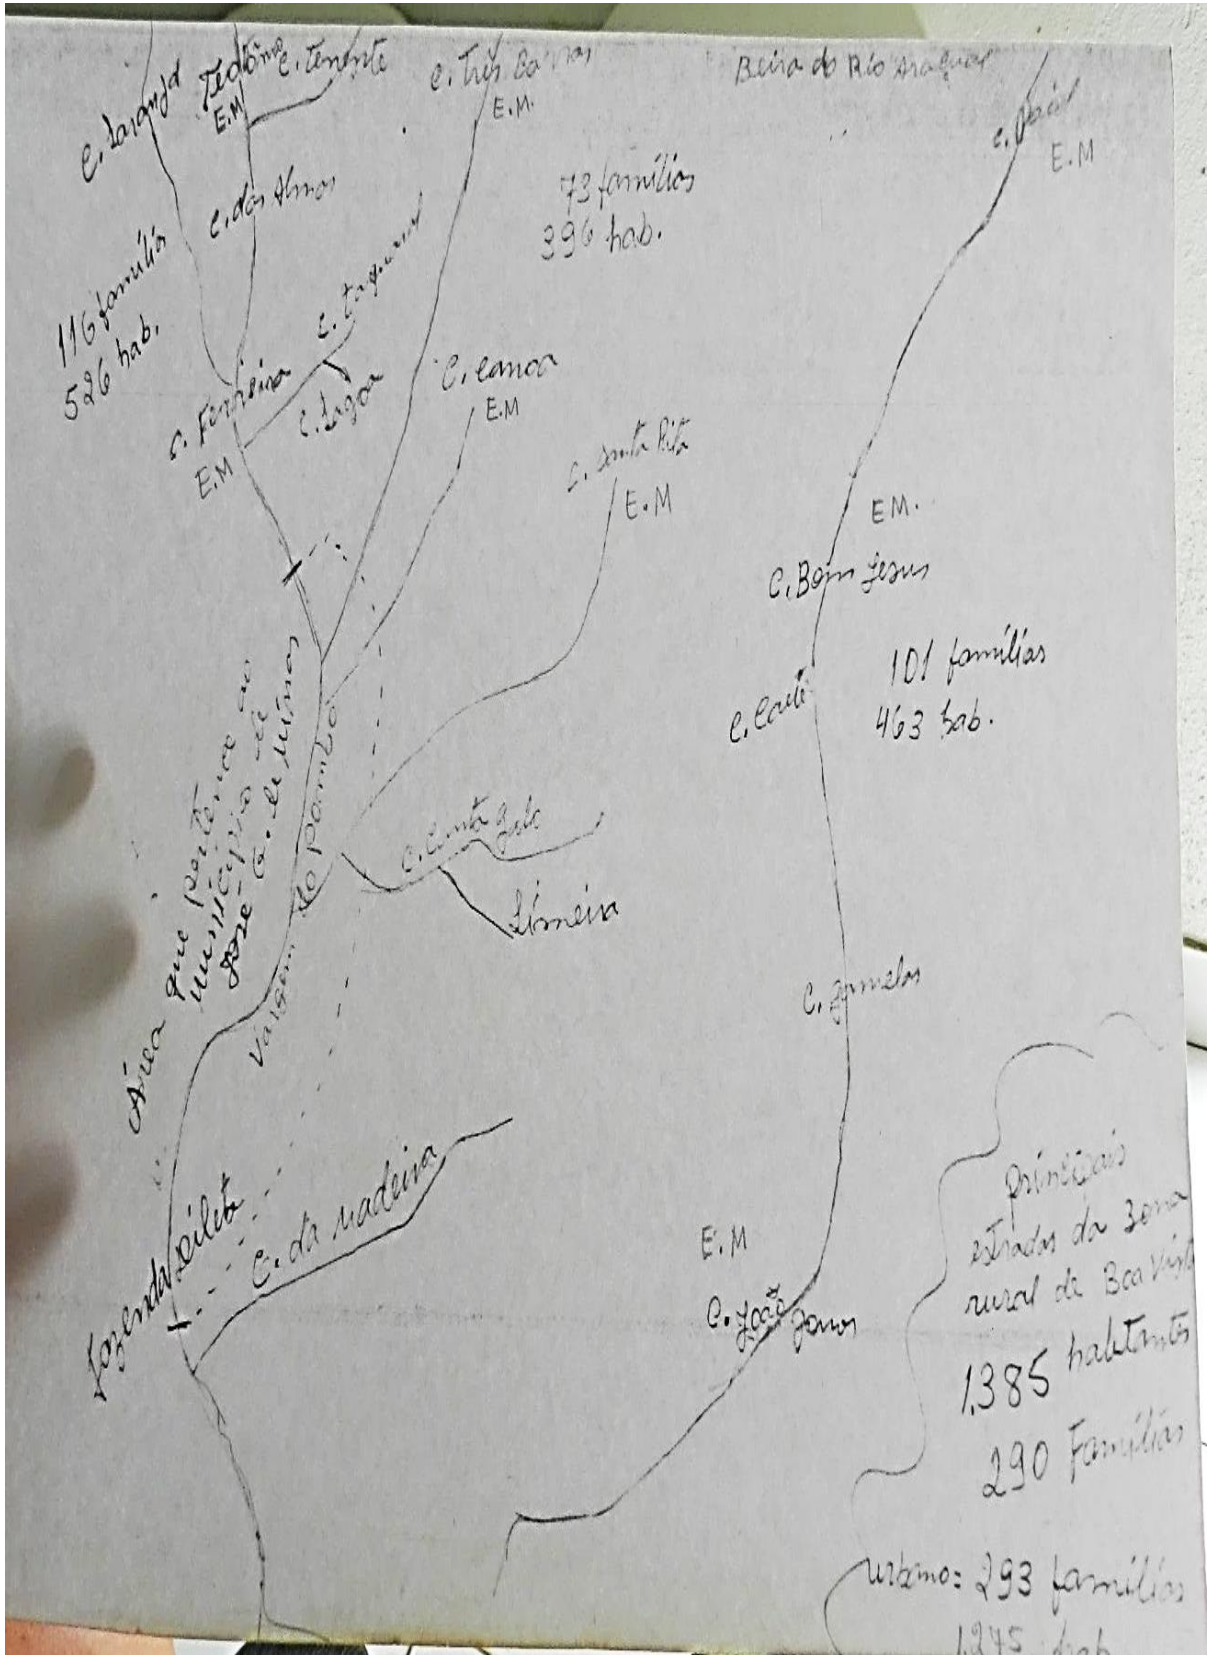 C. Laranja
Teotônio
E.M
C. Tenente
C. Três Barras
E.M.
Beira do Rio Araçuaí
E.M
C. das Almas
73 famílias
396 hab.
116 família
526 hab.
C. Taquaral
C. Lagoa
C. Ferreira
E.M
C. Canoa
E.M
C. Santa Rita
E.M
EM.
C. Bom Jesus
101 famílias
463 hab.
Área que pertence ao
município de
José G. de Minas
Vargem do Pombo
C. Canta Galo
Limeira
C. gamelas
Fazenda
C. da madeira
E.M
C. João
principais
estradas da zona
rural de Boa Vista
1.385 habitantes
290 Famílias
urbano: 293 famílias
1.245 hab